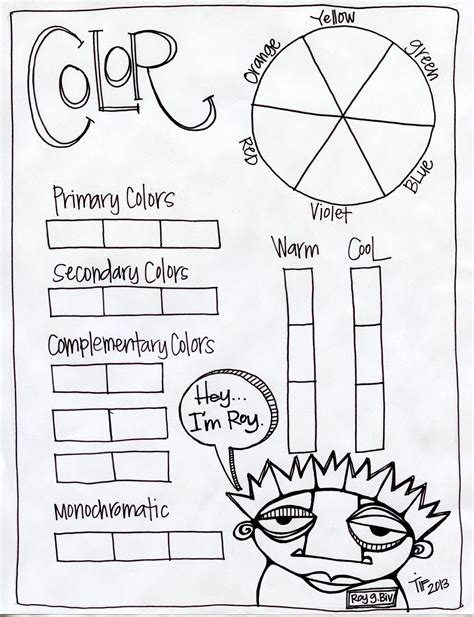 COLOR
Yellow
Orange
green
RED
BLUE
Violet
Primary Colors
Secondary Colors
Complementary Colors
Monochromatic
Warm
Cool
Hey...
I'm Roy.
Roy g. Biv
TIF
2013